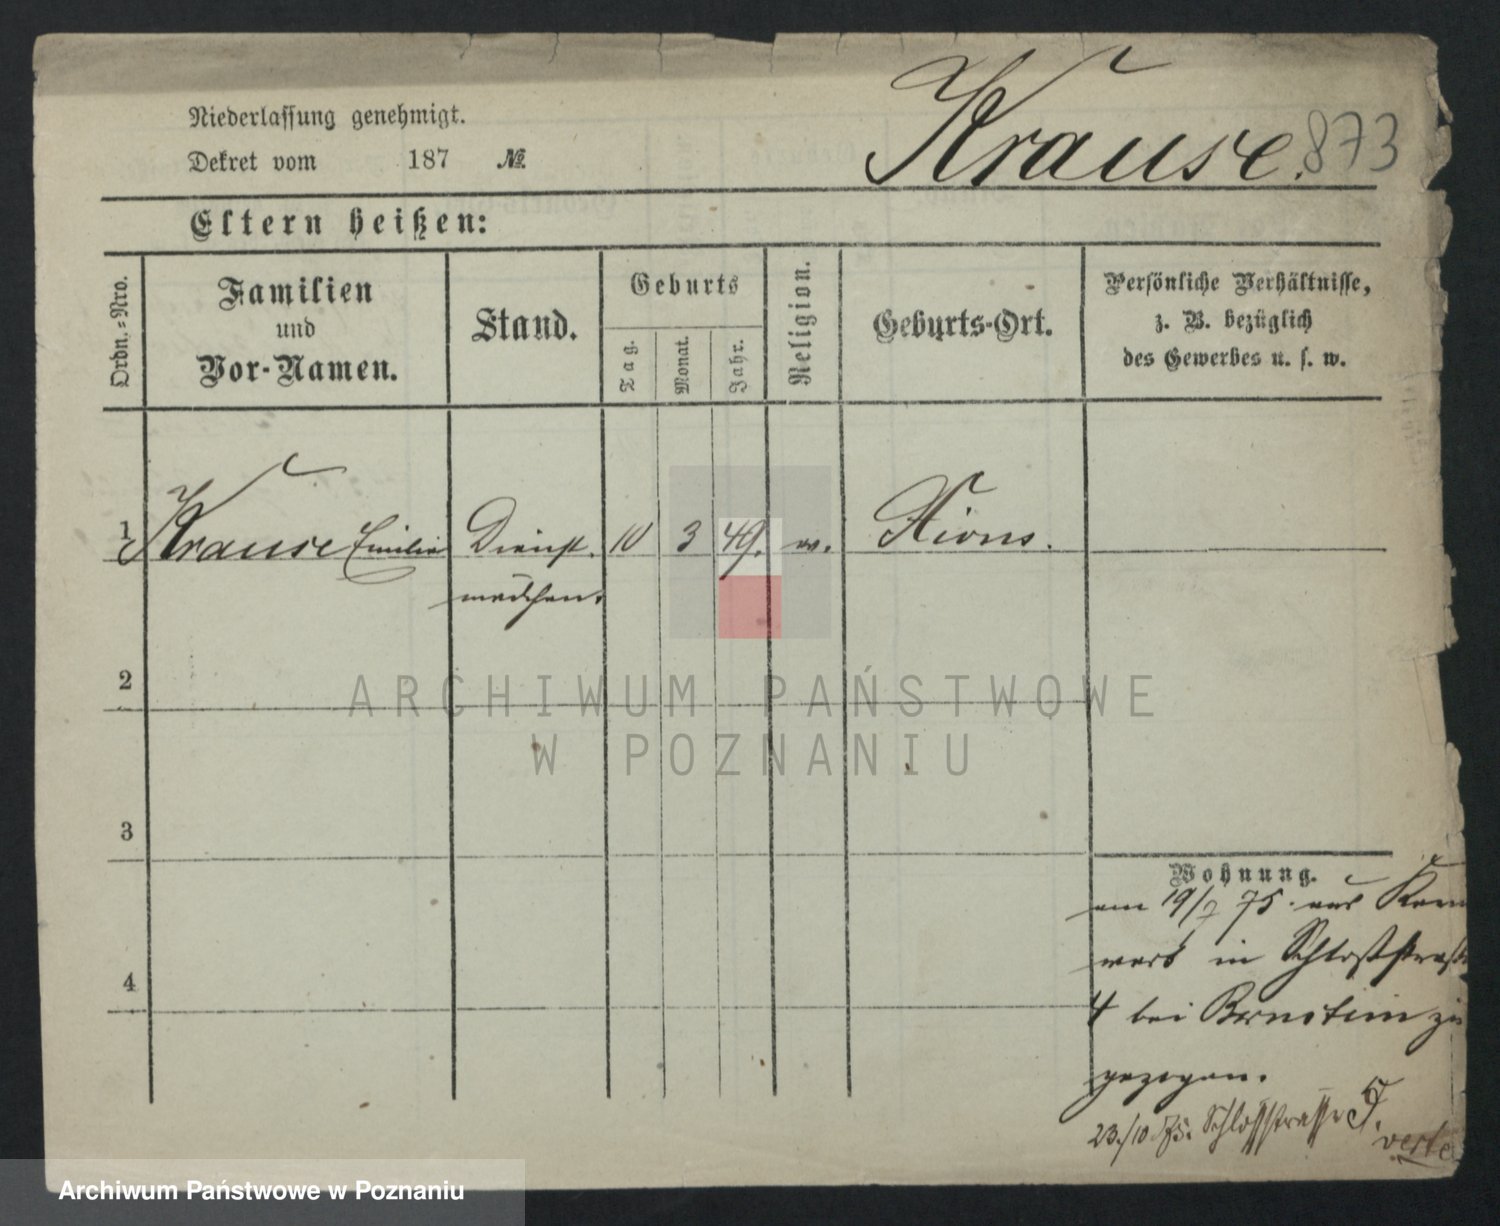 Krause. 873
Niederlassung genehmigt.
Dekret vom 187 №
Eltern heißen:
Ordn.-Nro.
Familien
und
Vor-Namen.
Stand.
Geburts
Tag.
Monat.
Jahr.
Religion.
Geburts-Ort.
Persönliche Verhältnisse,
z. B. bezüglich
des Gewerbes u. s. w.
1 Krause Emilie Dienst. 10 3 49. Xions.
mädchen.
2
ARCHIWUM PAŃSTWOWE
W POZNANIU
3
4
Wohnung.
am 19/7 75. aus
in Schloßstraße
4 bei Bernstein zu
gezogen.
23./10 75. Schloßstrasse 5.
verte
Archiwum Państwowe w Poznaniu